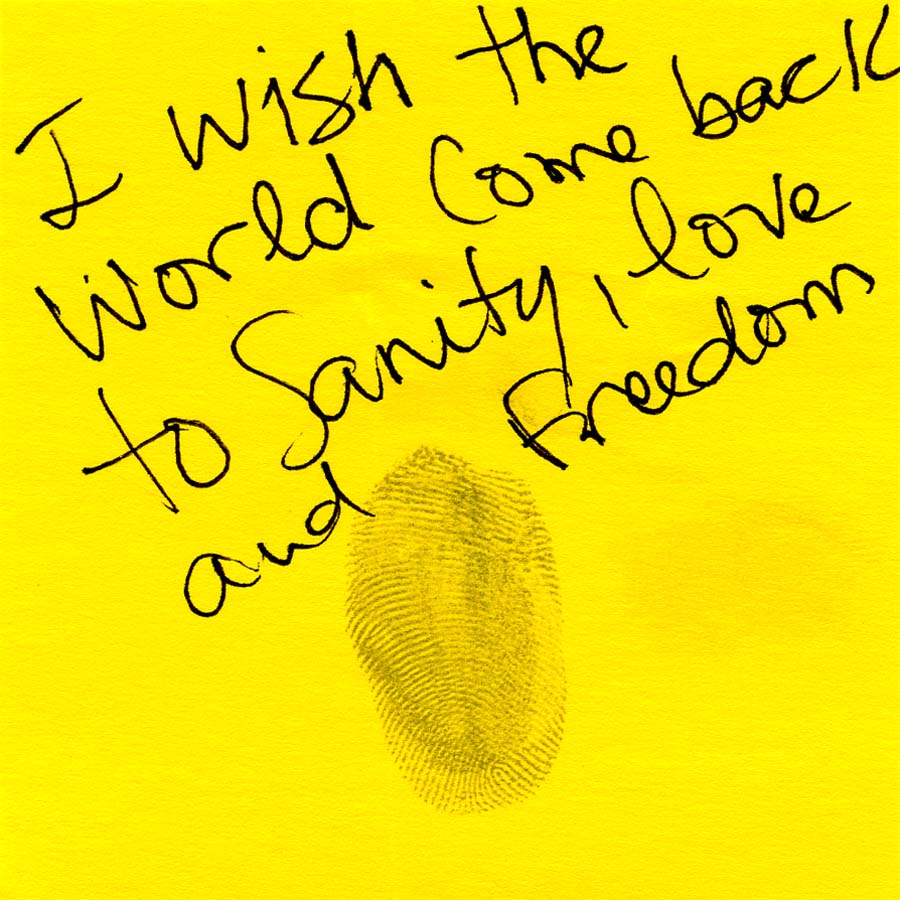 I wish the
World Come back
to Sanity, love
and Freedom